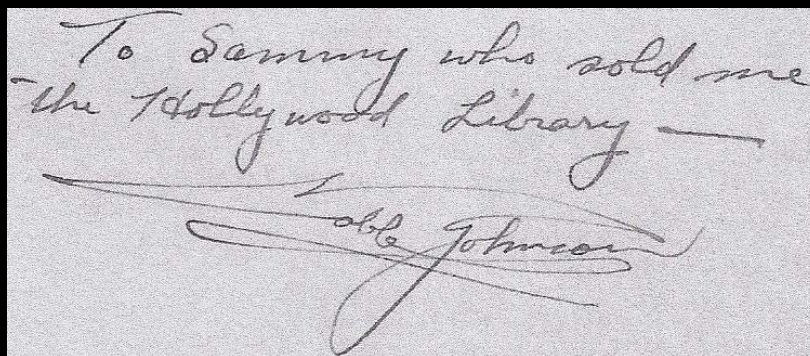 To Sammy who sold me
the Hollywood Library —
Noble Johnson